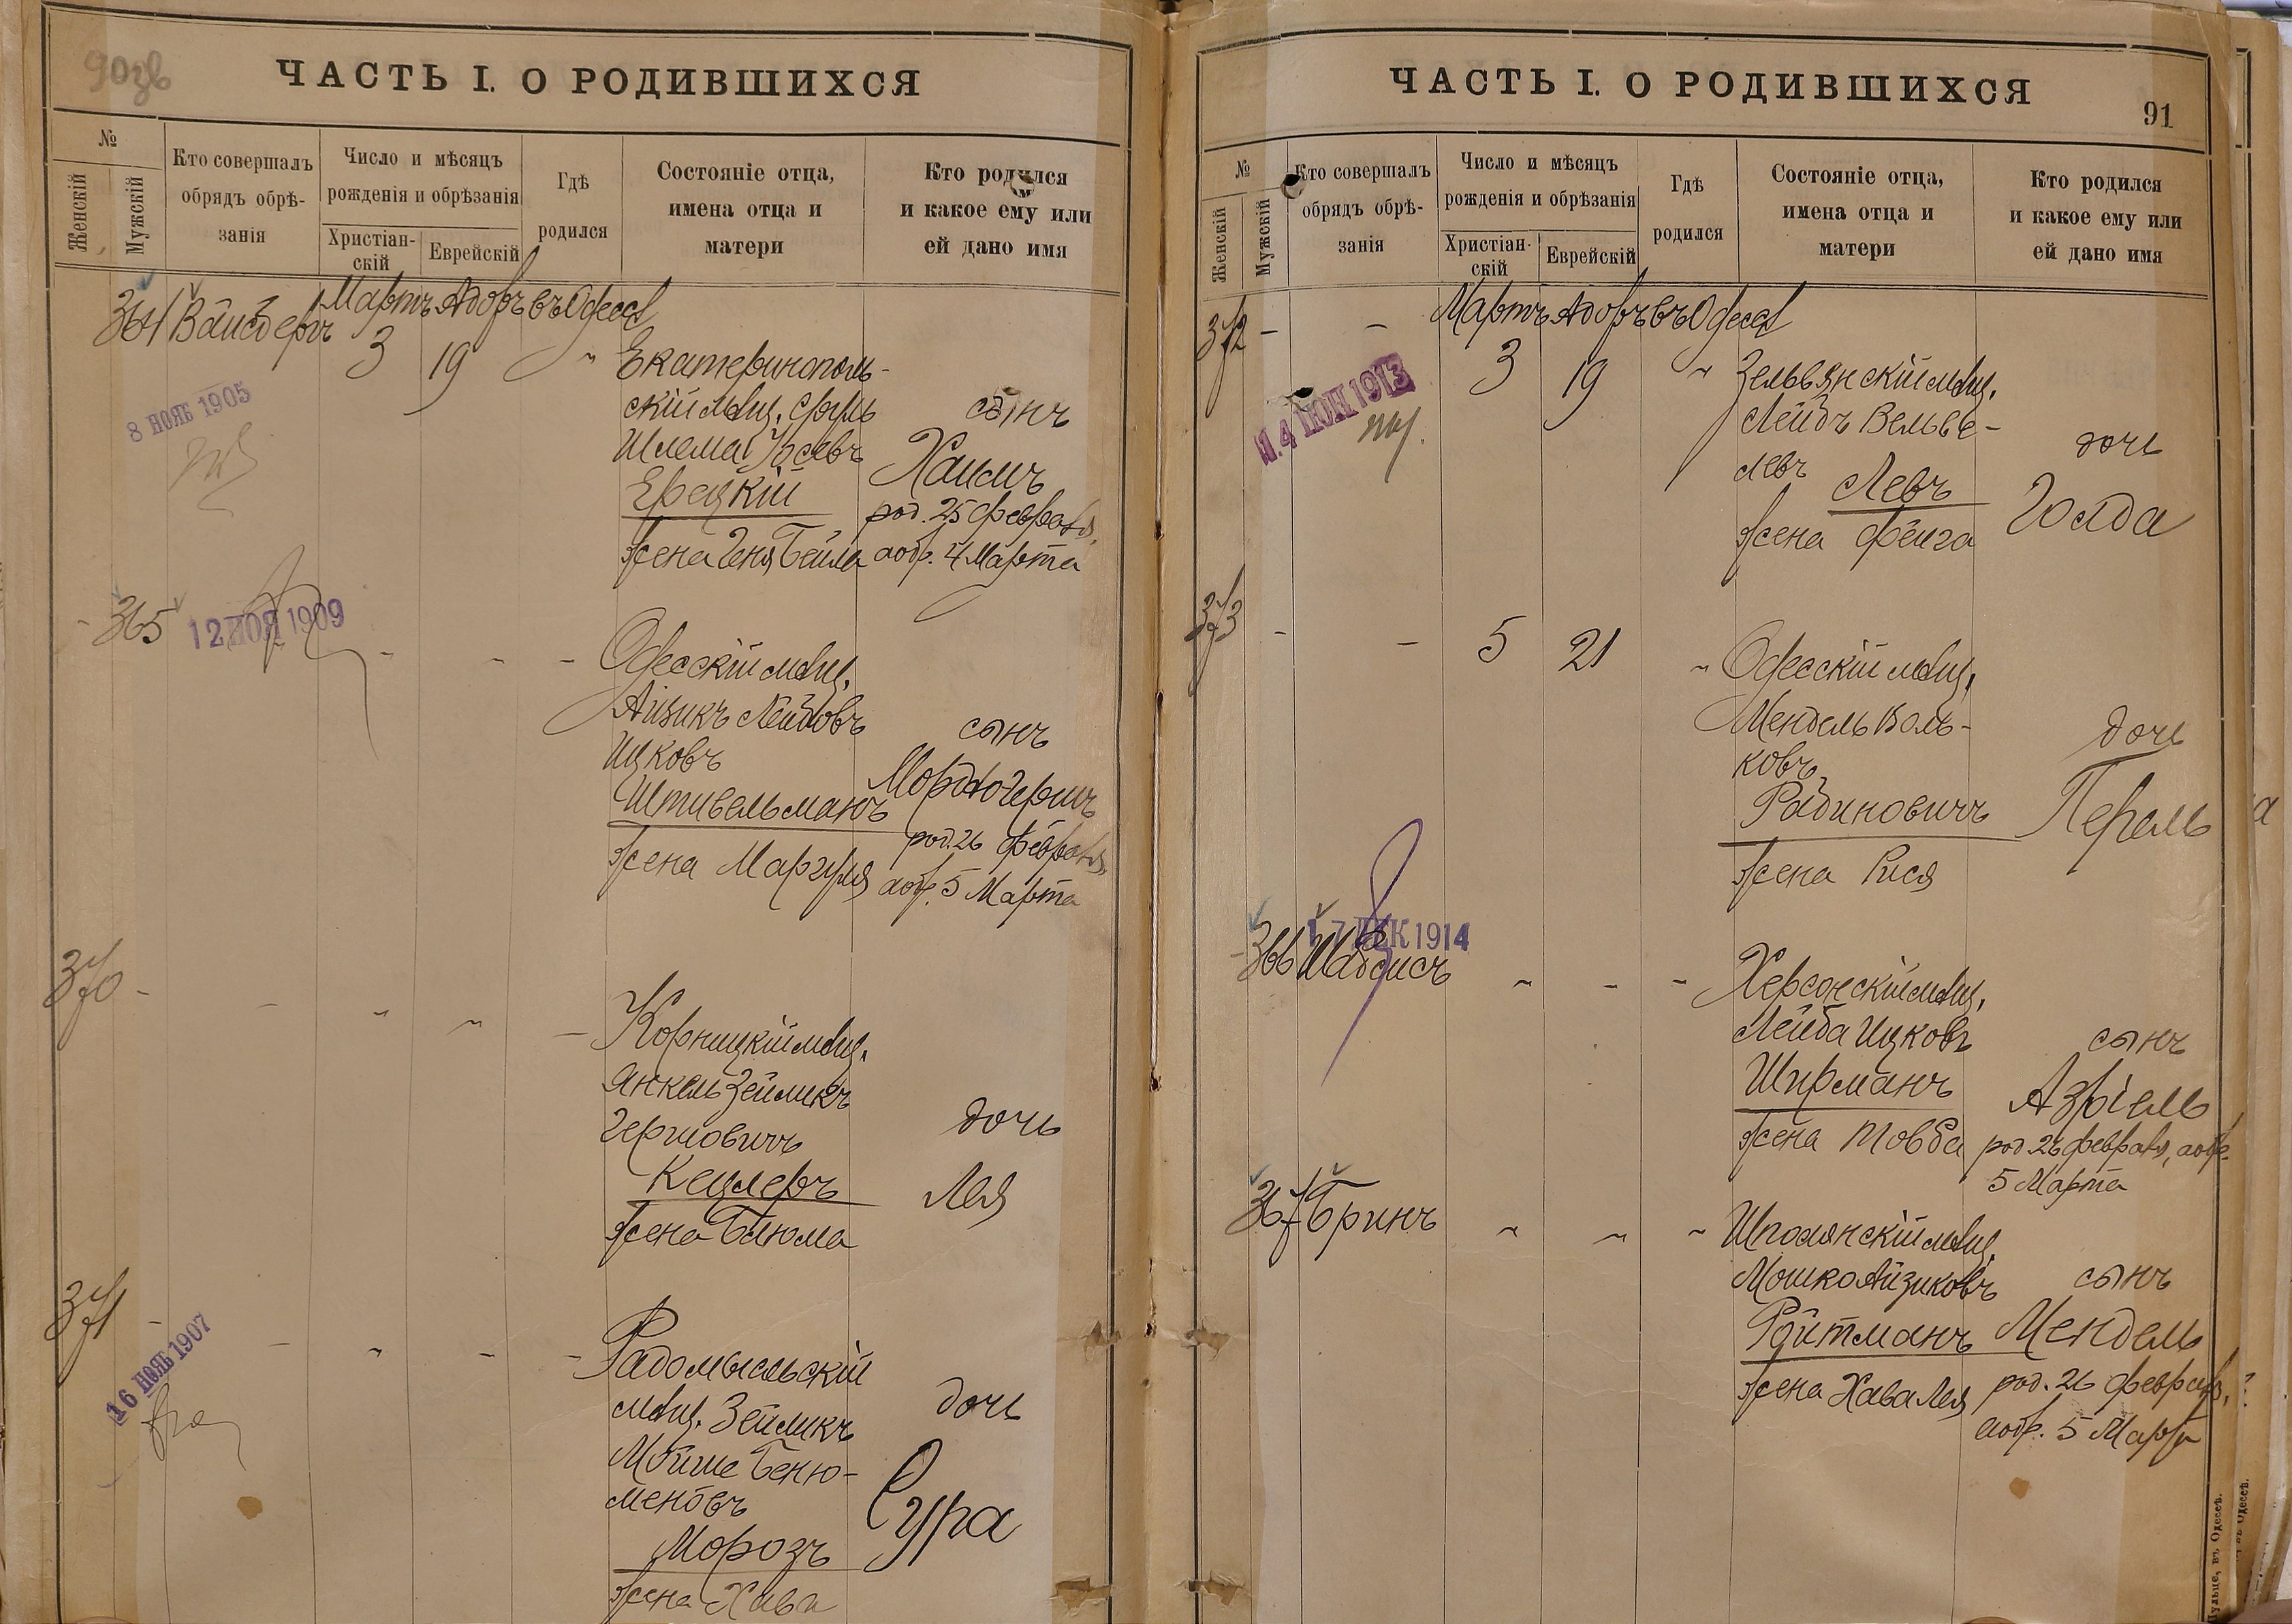 90
ЧАСТЬ I. О РОДИВШИХСЯ
№
Женскій
Мужскій
Кто совершалъ
обрядъ обрѣ-
занія
Число и мѣсяцъ
рожденія и обрѣзанія
Христіан-
скій
Еврейскій
Гдѣ
родился
Состояніе отца,
имена отца и
матери
Кто родился
и какое ему или
ей дано имя
Мартъ Адоръ въ Одессѣ
364 Вайсбергъ 3 19 " Екатеринополь-
скій мѣщ. Сруль
Шлема
Ерецкій
жена Геня Бейла
сынъ
Хаимъ
род. 25 февраля,
аобр. 4 Марта
8 НОЯБ 1905
365 - - - Одесскій мѣщ.
Айзикъ Лейбовъ
Ицковъ
Штивельманъ
жена Маргуля
сынъ
Мордко Гершъ
род. 26 февраля,
аобр. 5 Марта
12 НОЯ 1909
370 - - " " - Корницкій мѣщ.
Янкель Зейликъ
Гершовичъ
Кецлеръ
жена Блюма
дочь
Лея
371 - - " - - Радомысльскій
мѣщ. Зейликъ
Мойше Беню-
меновъ
Морозъ
жена Хава
дочь
Сура
16 НОЯБ 1907
ЧАСТЬ I. О РОДИВШИХСЯ
91
№
Женскій
Мужскій
Кто совершалъ
обрядъ обрѣ-
занія
Число и мѣсяцъ
рожденія и обрѣзанія
Христіан-
скій
Еврейскій
Гдѣ
родился
Состояніе отца,
имена отца и
матери
Кто родился
и какое ему или
ей дано имя
Мартъ Адоръ въ Одессѣ
372 - - 3 19 " Зельвянскій мѣщ.
Лейбъ Вельве-
левъ
Левъ
жена Фейга
дочь
Голда
4 ІЮН 1913
373 - - 5 21 " Одесскій мѣщ.
Мендель Воль-
ковъ
Рабиновичъ
жена Рися
дочь
Перель
17 ДЕК 1914
366 Шабсисъ " - - Херсонскій мѣщ.
Лейба Ицковъ
Ширманъ
жена Товба
сынъ
Азріель
род. 26 февраля, аобр.
5 Марта
367 Бринъ " " " Шполянскій мѣщ.
Мошко Айзиковъ
Ройтманъ
жена Хава Лея
сынъ
Мендель
род. 26 февраля,
аобр. 5 Марта
въ Одессѣ.